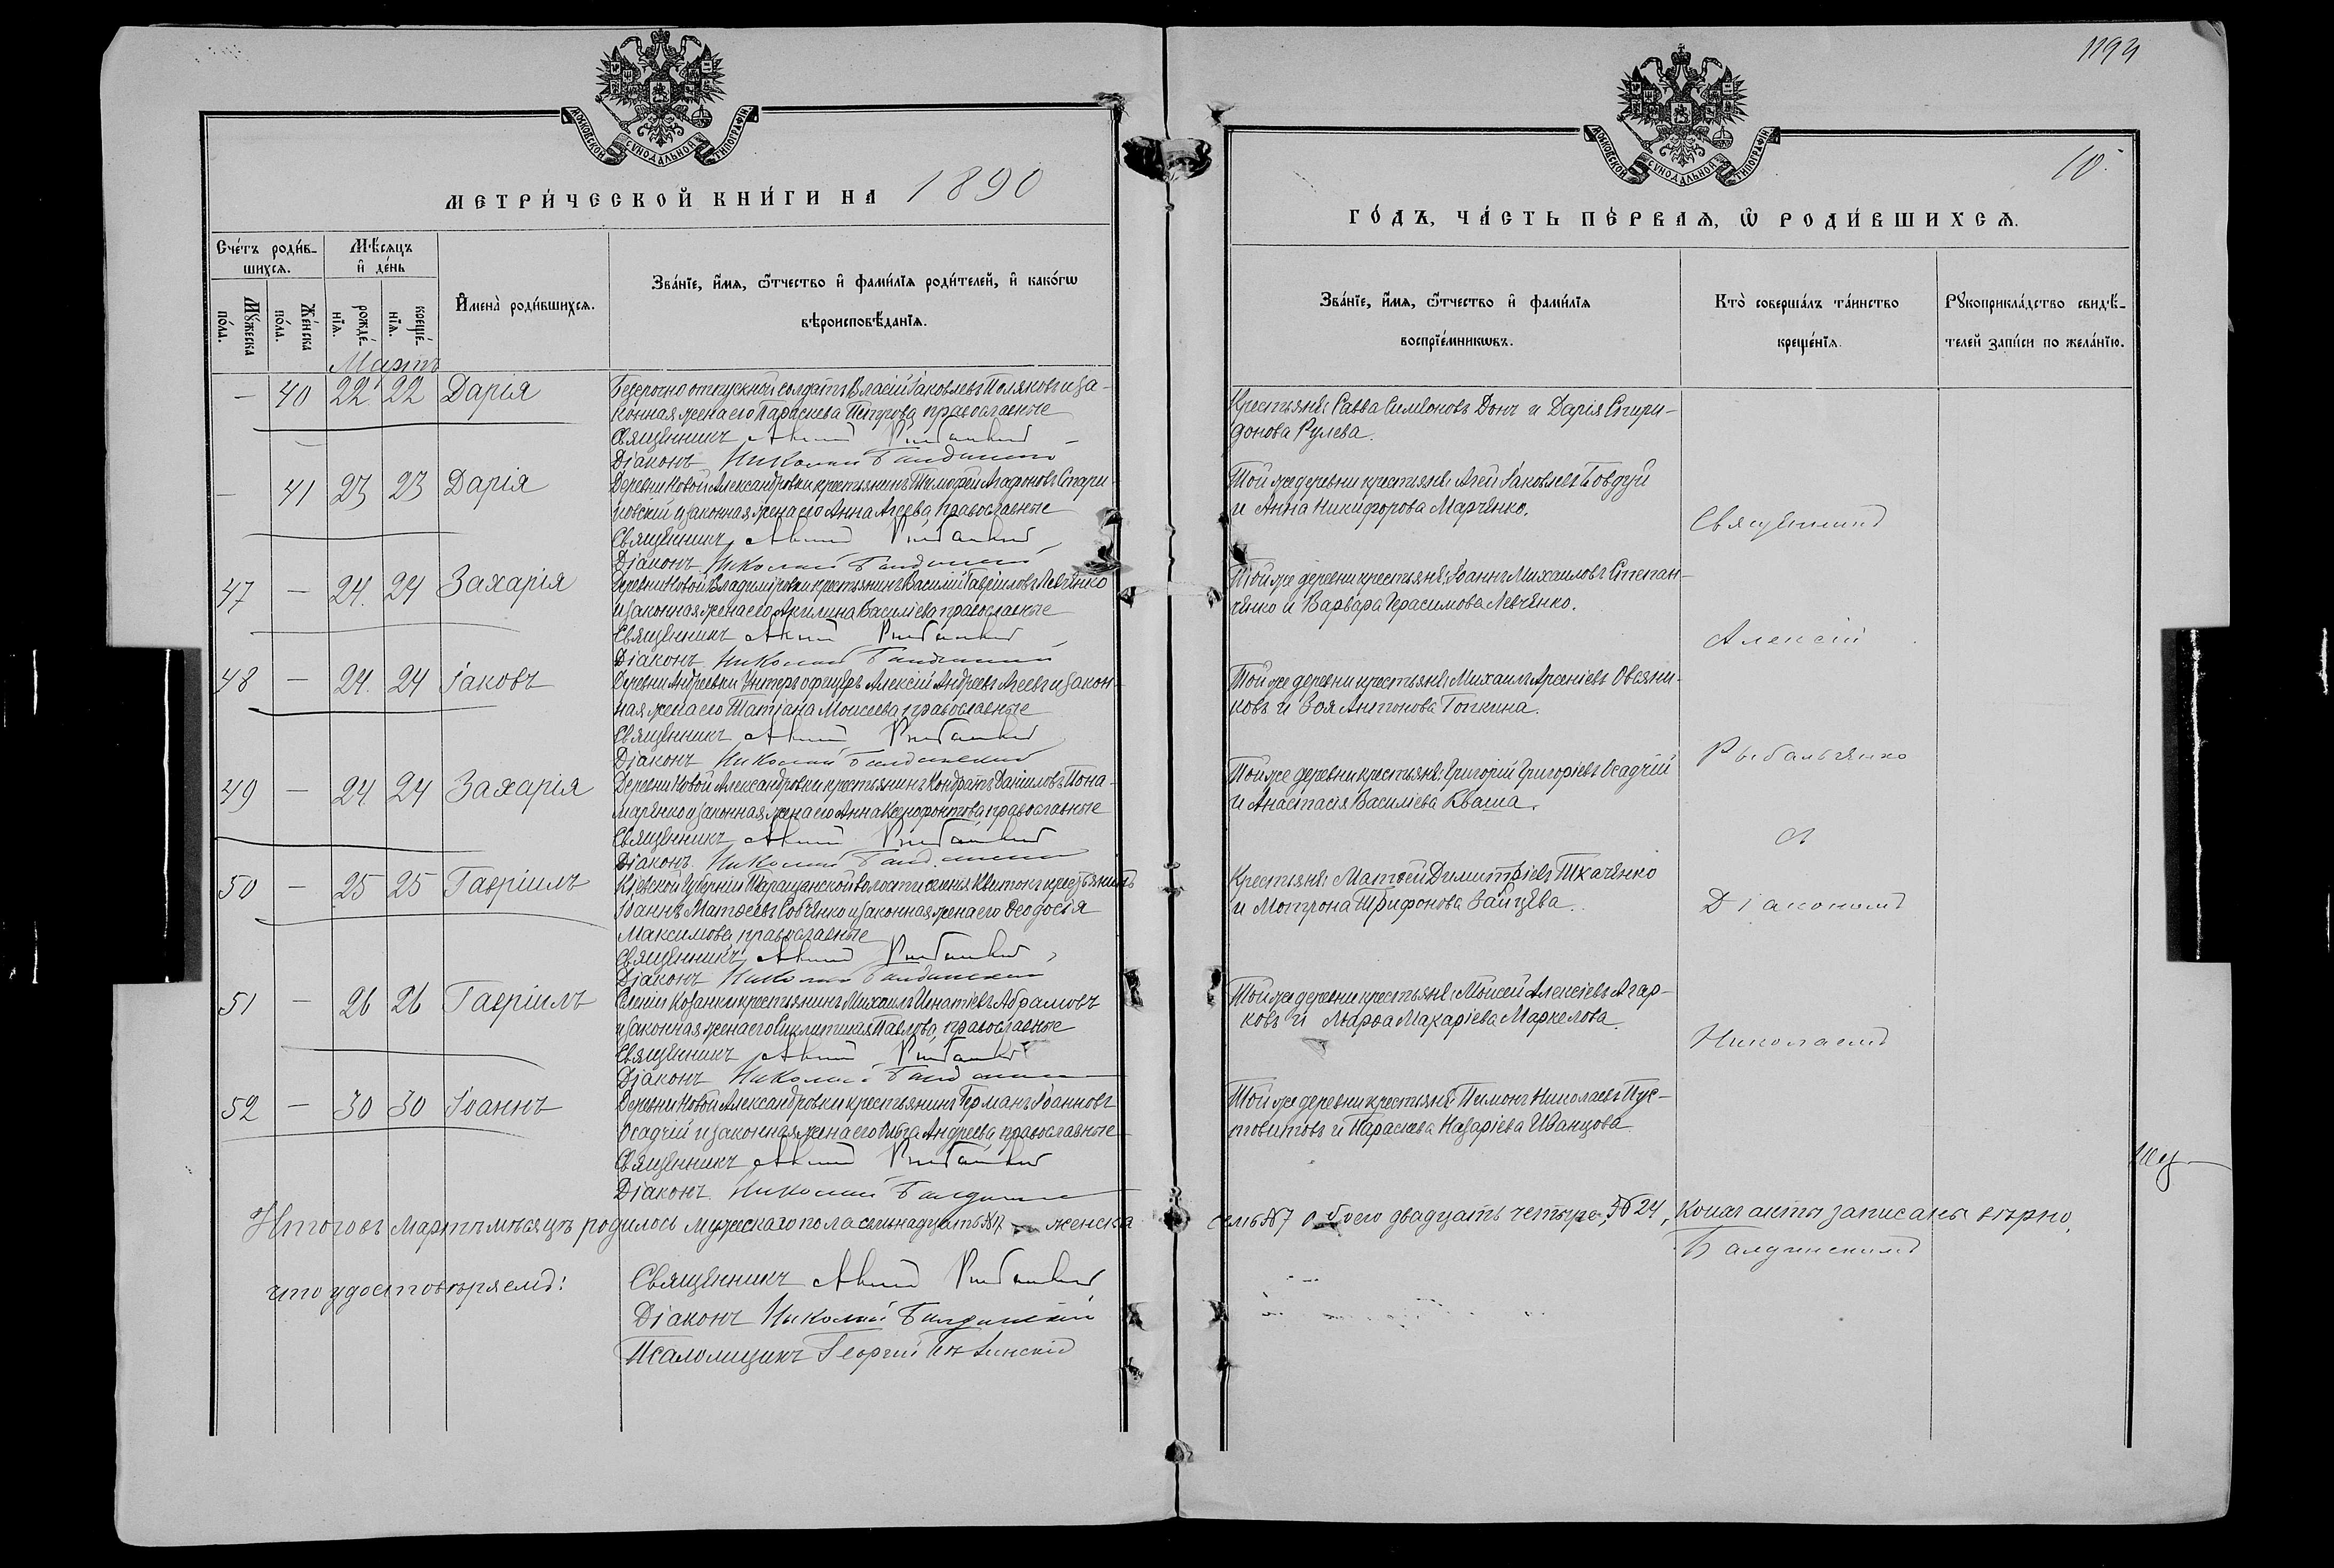 1194
10.
МОСКОВСКОЙ СѴНОДАЛЬНОЙ ТИПОГРАФІИ
МОСКОВСКОЙ СѴНОДАЛЬНОЙ ТИПОГРАФІИ
МЕТРИ́ЧЕСКОЙ КНИ́ГИ НА 1890
ГО́ДЪ, ЧА́СТЬ ПЕ́РВАѦ, Ѡ҆ РОДИ́ВШИХСѦ.
Сче́тъ роди́в-
шихсѧ.
Мѹ́жеска
по́ла.
Же́нска
по́ла.
Мѣ́сѧцъ
и҆ де́нь
рожде́-
нїѧ.
креще́-
нїѧ.
И҆мена̀ роди́вшихсѧ.
Зва́нїе, и҆́мѧ, ѻ҆́тчество и҆ фами́лїѧ роди́телей, и҆ како́гѡ
вѣроисповѣ́данїѧ.
Зва́нїе, и҆́мѧ, ѻ҆́тчество и҆ фами́лїѧ
воспрїе́мникѡвъ.
Кто̀ соверша́лъ та́инство
креще́нїѧ.
Рѹкоприкла́дство свидѣ́-
телей за́писи по жела́нїю.
Мартъ
— 40 22 22 Дарія
Безсрочно отпускной солдатъ Власій Іаковлевъ Поляковъ и за-
конная жена его Параскева Петрова, православные
Священникъ
Діаконъ Николай Балдинскій
Крестьяне: Савва Симеоновъ Донъ и Дарія Спири-
донова Рулева.
— 41 23 23 Дарія
Деревни Новой Александровки крестьянинъ Тимофей Агафоновъ
и законная жена его Анна Агеева, православные
Священникъ
Діаконъ Николай Балдинскій
Той же деревни крестьяне: Агей Іаковлевъ Бовдуй
и Анна Никифорова Марченко.
47 — 24 24 Захарія
Деревни Новой Владиміровки крестьянинъ Василій Гавріиловъ Левченко
и законная жена его Акилина Василіева, православные
Священникъ
Діаконъ Николай Балдинскій
Той же деревни крестьяне: Іоаннъ Михаиловъ Степан-
ченко и Варвара Герасимова Левченко.
48 — 24 24 Іаковъ
Деревни Андреевки Унтеръ офицеръ Алексій Андреевъ Агеевъ и закон-
ная жена его Татіана Моисеева, православные
Священникъ
Діаконъ Николай Балдинскій
Той же деревни крестьяне: Михаилъ Арсеніевъ Овсяни-
ковъ и Зоя Антонова Топкина.
49 — 24 24 Захарія
Деревни Новой Александровки крестьянинъ Кондратъ Даніиловъ Пона-
маренко и законная жена его Анна Ксенофонтова, православные
Священникъ
Діаконъ Николай Балдинскій
Той же деревни крестьяне: Григорій Григоріевъ Осадчій
и Анастасія Василіева Кваша.
50 — 25 25 Гавріилъ
Кіевской Губерніи Таращанской волости селенія Квитокъ крестьянинъ
Іоаннъ Матѳеевъ Собченко и законная жена его Ѳеодосія
Максимова, православные
Священникъ
Діаконъ Николай Балдинскій
Крестьяне: Матѳей Димитріевъ Ткаченко
и Мотрона Трифонова Зайцева.
51 — 26 26 Гавріилъ
Селенія Козинки крестьянинъ Михаилъ Игнатіевъ Абрамовъ
и законная жена его Синклитикія Павлова, православные
Священникъ
Діаконъ Николай Балдинскій
Той же деревни крестьяне: Моисей Алексіевъ Агар-
ковъ и Марѳа Макаріева Маркелова.
52 — 30 30 Іоаннъ
Деревни Новой Александровки крестьянинъ Германъ Іоанновъ
Осадчій и законная жена его Ольга Андреева, православные
Священникъ
Діаконъ Николай Балдинскій
Той же деревни крестьяне: Пимонъ Николаевъ Пус-
товитовъ и Параскева Назаріева Иванцова.
Священникъ
Алексій
Рыбальченко
съ
Діакономъ
Николаемъ
Балдинскимъ
Итого въ Мартѣ мѣсяцѣ родилось мужскаго пола семьнадцать №17 женска
семь №7 обоего двадцать четыре, №24, коихъ акты записаны вѣрно,
что удостовѣряемъ:
Священникъ
Діаконъ Николай Балдинскій
Псаломщикъ Георгій